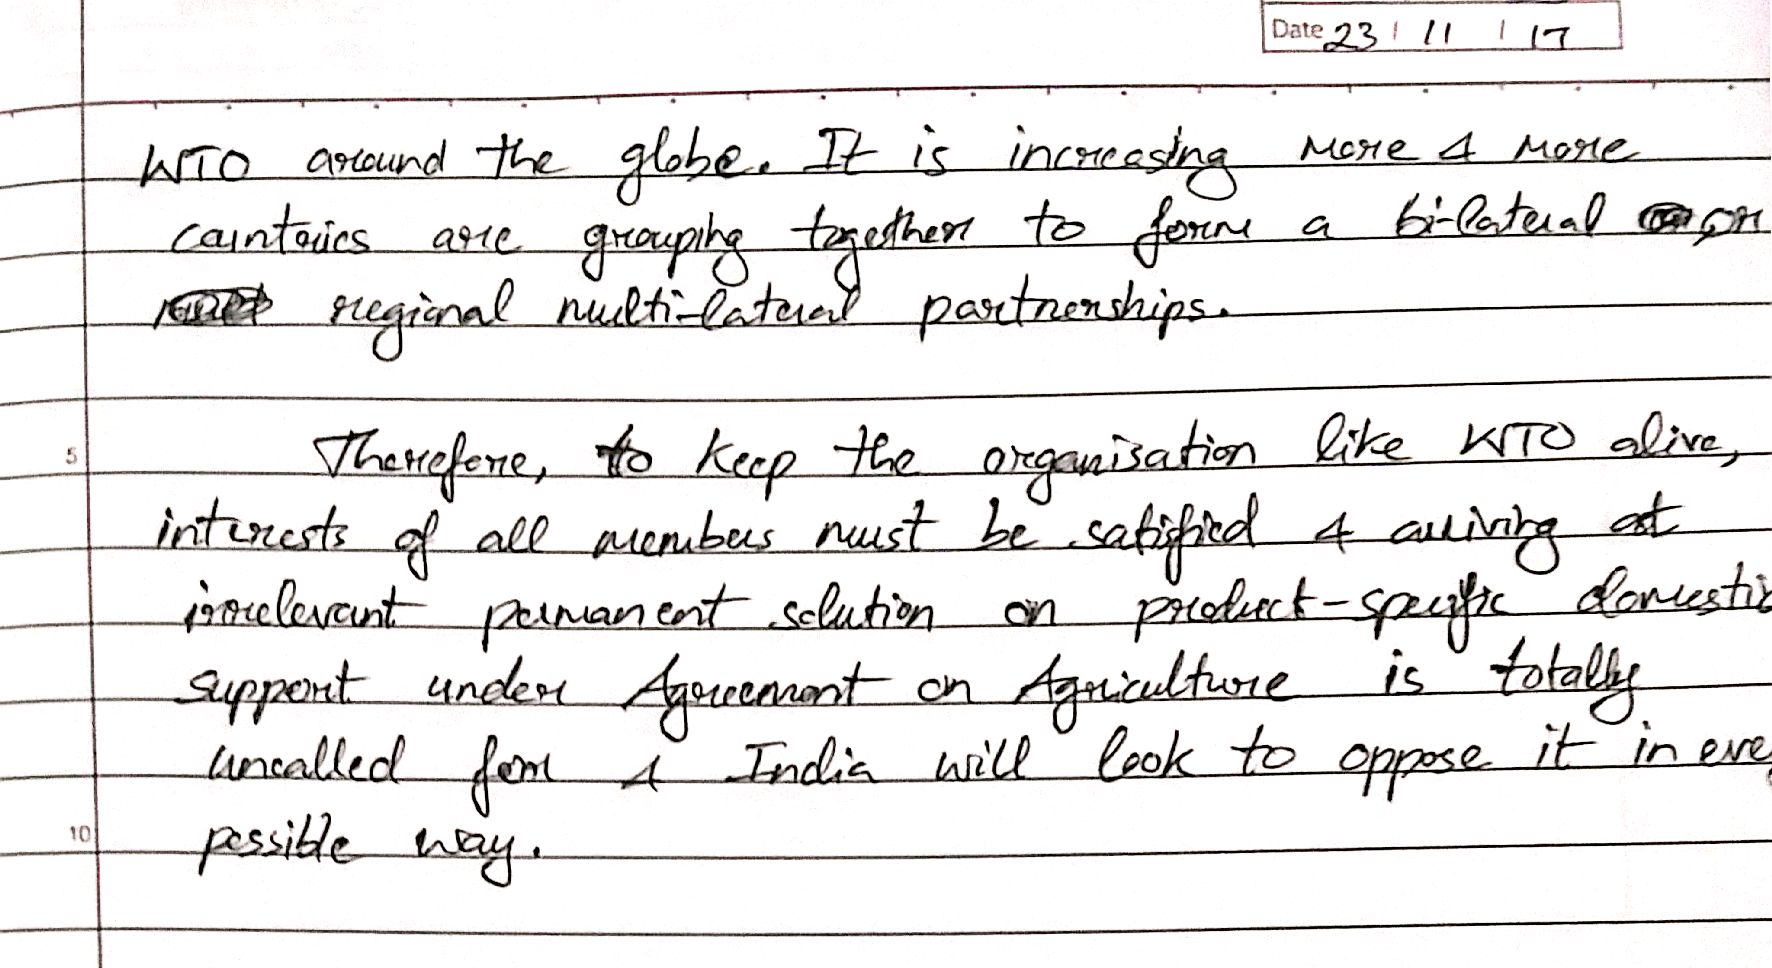 Date 23 / 11 / 17
WTO around the globe. It is increasing more & more
countries are grouping together to form a bi-lateral or
regional multi-lateral partnerships.
5
Therefore, to keep the organisation like WTO alive,
interests of all members must be satisfied & arriving at
irrelevant permanent solution on product-specific domestic
support under Agreement on Agriculture is totally
uncalled for & India will look to oppose it in eve
10
possible way.